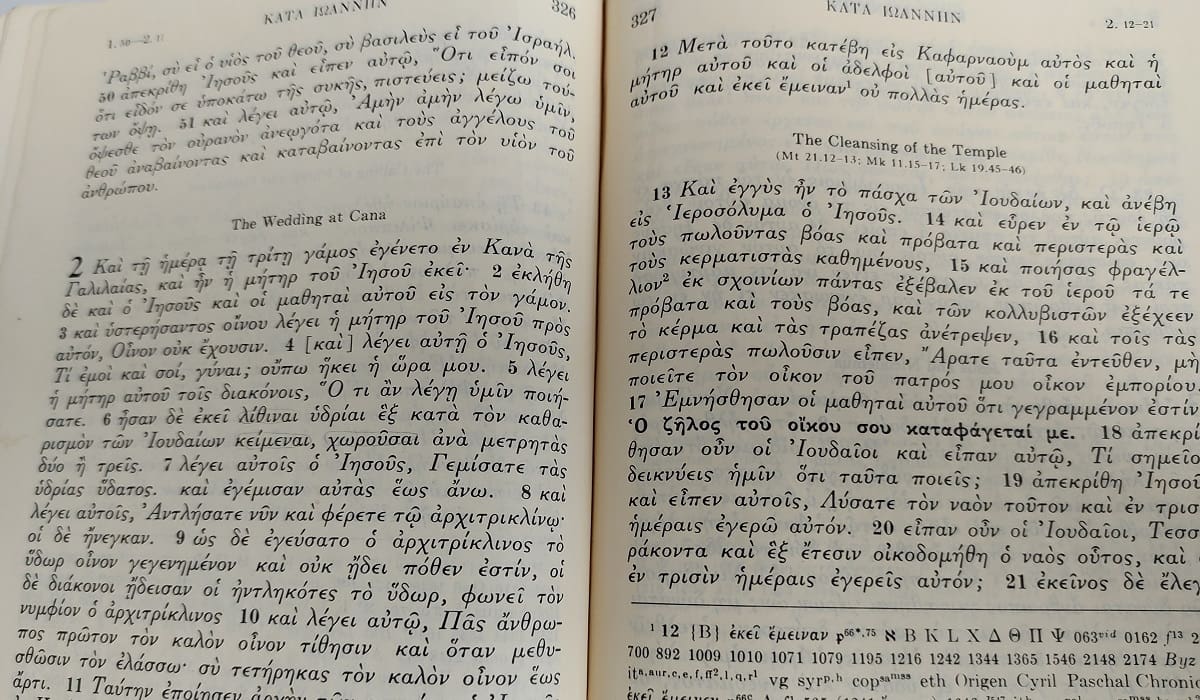 ΚΑΤΑ ΙΩΑΝΝΗΝ
326
1. 50—2. 11
Ῥαββί, σὺ εἶ ὁ υἱὸς τοῦ θεοῦ, σὺ βασιλεὺς εἶ τοῦ Ἰσραήλ.
50 ἀπεκρίθη Ἰησοῦς καὶ εἶπεν αὐτῷ, Ὅτι εἶπόν σοι
ὅτι εἶδόν σε ὑποκάτω τῆς συκῆς, πιστεύεις; μείζω τού-
των ὄψῃ. 51 καὶ λέγει αὐτῷ, Ἀμὴν ἀμὴν λέγω ὑμῖν,
ὄψεσθε τὸν οὐρανὸν ἀνεῳγότα καὶ τοὺς ἀγγέλους τοῦ
θεοῦ ἀναβαίνοντας καὶ καταβαίνοντας ἐπὶ τὸν υἱὸν τοῦ
ἀνθρώπου.
The Wedding at Cana
2 Καὶ τῇ ἡμέρᾳ τῇ τρίτῃ γάμος ἐγένετο ἐν Κανὰ τῆς
Γαλιλαίας, καὶ ἦν ἡ μήτηρ τοῦ Ἰησοῦ ἐκεῖ· 2 ἐκλήθη
δὲ καὶ ὁ Ἰησοῦς καὶ οἱ μαθηταὶ αὐτοῦ εἰς τὸν γάμον.
3 καὶ ὑστερήσαντος οἴνου λέγει ἡ μήτηρ τοῦ Ἰησοῦ πρὸς
αὐτόν, Οἶνον οὐκ ἔχουσιν. 4 [καὶ] λέγει αὐτῇ ὁ Ἰησοῦς,
Τί ἐμοὶ καὶ σοί, γύναι; οὔπω ἥκει ἡ ὥρα μου. 5 λέγει
ἡ μήτηρ αὐτοῦ τοῖς διακόνοις, Ὅ τι ἂν λέγῃ ὑμῖν ποιή-
σατε. 6 ἦσαν δὲ ἐκεῖ λίθιναι ὑδρίαι ἓξ κατὰ τὸν καθα-
ρισμὸν τῶν Ἰουδαίων κείμεναι, χωροῦσαι ἀνὰ μετρητὰς
δύο ἢ τρεῖς. 7 λέγει αὐτοῖς ὁ Ἰησοῦς, Γεμίσατε τὰς
ὑδρίας ὕδατος. καὶ ἐγέμισαν αὐτὰς ἕως ἄνω. 8 καὶ
λέγει αὐτοῖς, Ἀντλήσατε νῦν καὶ φέρετε τῷ ἀρχιτρικλίνῳ·
οἱ δὲ ἤνεγκαν. 9 ὡς δὲ ἐγεύσατο ὁ ἀρχιτρίκλινος τὸ
ὕδωρ οἶνον γεγενημένον καὶ οὐκ ᾔδει πόθεν ἐστίν, οἱ
δὲ διάκονοι ᾔδεισαν οἱ ἠντληκότες τὸ ὕδωρ, φωνεῖ τὸν
νυμφίον ὁ ἀρχιτρίκλινος 10 καὶ λέγει αὐτῷ, Πᾶς ἄνθρω-
πος πρῶτον τὸν καλὸν οἶνον τίθησιν καὶ ὅταν μεθυ-
σθῶσιν τὸν ἐλάσσω· σὺ τετήρηκας τὸν καλὸν οἶνον ἕως
ἄρτι. 11 Ταύτην ἐποίησεν
327
ΚΑΤΑ ΙΩΑΝΝΗΝ
2. 12–21
12 Μετὰ τοῦτο κατέβη εἰς Καφαρναοὺμ αὐτὸς καὶ ἡ
μήτηρ αὐτοῦ καὶ οἱ ἀδελφοὶ [αὐτοῦ] καὶ οἱ μαθηταὶ
αὐτοῦ καὶ ἐκεῖ ἔμειναν¹ οὐ πολλὰς ἡμέρας.
The Cleansing of the Temple
(Mt 21.12–13; Mk 11.15–17; Lk 19.45–46)
13 Καὶ ἐγγὺς ἦν τὸ πάσχα τῶν Ἰουδαίων, καὶ ἀνέβη
εἰς Ἱεροσόλυμα ὁ Ἰησοῦς. 14 καὶ εὗρεν ἐν τῷ ἱερῷ
τοὺς πωλοῦντας βόας καὶ πρόβατα καὶ περιστερὰς καὶ
τοὺς κερματιστὰς καθημένους, 15 καὶ ποιήσας φραγέλ-
λιον² ἐκ σχοινίων πάντας ἐξέβαλεν ἐκ τοῦ ἱεροῦ τά τε
πρόβατα καὶ τοὺς βόας, καὶ τῶν κολλυβιστῶν ἐξέχεεν
τὸ κέρμα καὶ τὰς τραπέζας ἀνέτρεψεν, 16 καὶ τοῖς τὰς
περιστερὰς πωλοῦσιν εἶπεν, Ἄρατε ταῦτα ἐντεῦθεν, μὴ
ποιεῖτε τὸν οἶκον τοῦ πατρός μου οἶκον ἐμπορίου.
17 Ἐμνήσθησαν οἱ μαθηταὶ αὐτοῦ ὅτι γεγραμμένον ἐστίν
Ὁ ζῆλος τοῦ οἴκου σου καταφάγεταί με. 18 ἀπεκρί
θησαν οὖν οἱ Ἰουδαῖοι καὶ εἶπαν αὐτῷ, Τί σημεῖο
δεικνύεις ἡμῖν ὅτι ταῦτα ποιεῖς; 19 ἀπεκρίθη Ἰησοῦ
καὶ εἶπεν αὐτοῖς, Λύσατε τὸν ναὸν τοῦτον καὶ ἐν τρισ
ἡμέραις ἐγερῶ αὐτόν. 20 εἶπαν οὖν οἱ Ἰουδαῖοι, Τεσσ
ράκοντα καὶ ἓξ ἔτεσιν οἰκοδομήθη ὁ ναὸς οὗτος, καὶ
ἐν τρισὶν ἡμέραις ἐγερεῖς αὐτόν; 21 ἐκεῖνος δὲ ἔλε
¹ 12 {B} ἐκεῖ ἔμειναν p⁶⁶*,⁷⁵ ℵ B K L X Δ Θ Π Ψ 063ᵛⁱᵈ 0162 f¹³ 2
700 892 1009 1010 1071 1079 1195 1216 1242 1344 1365 1546 2148 2174 Byz
itᵃ,ᵃᵘʳ,ᶜ,ᵉ,ᶠ,ᶠᶠ²,ˡ,q,ʳˡ vg syrᵖ,ʰ copˢᵃᵐˢˢ eth Origen Cyril Paschal Chronic